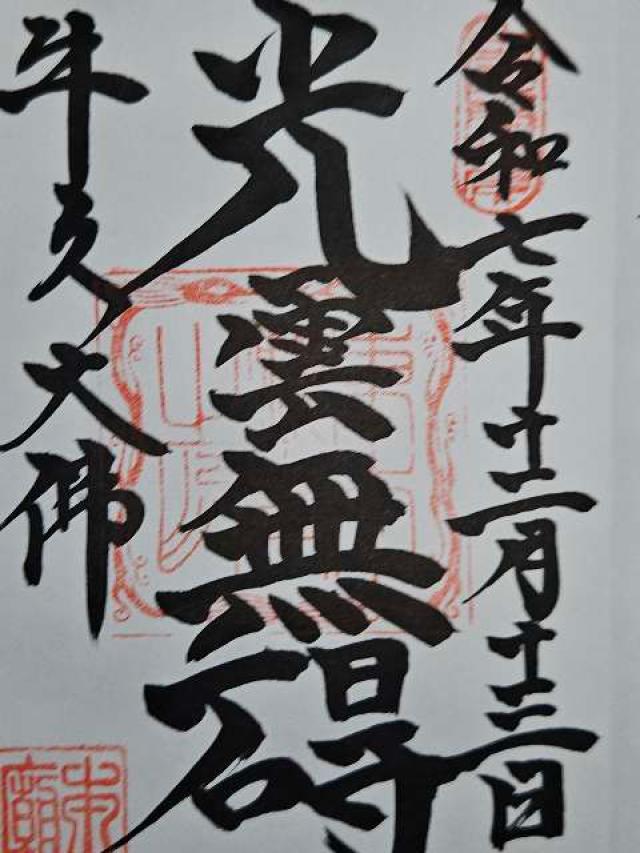 令和七年十二月十三日
光雲無碍
牛久大佛
本廟